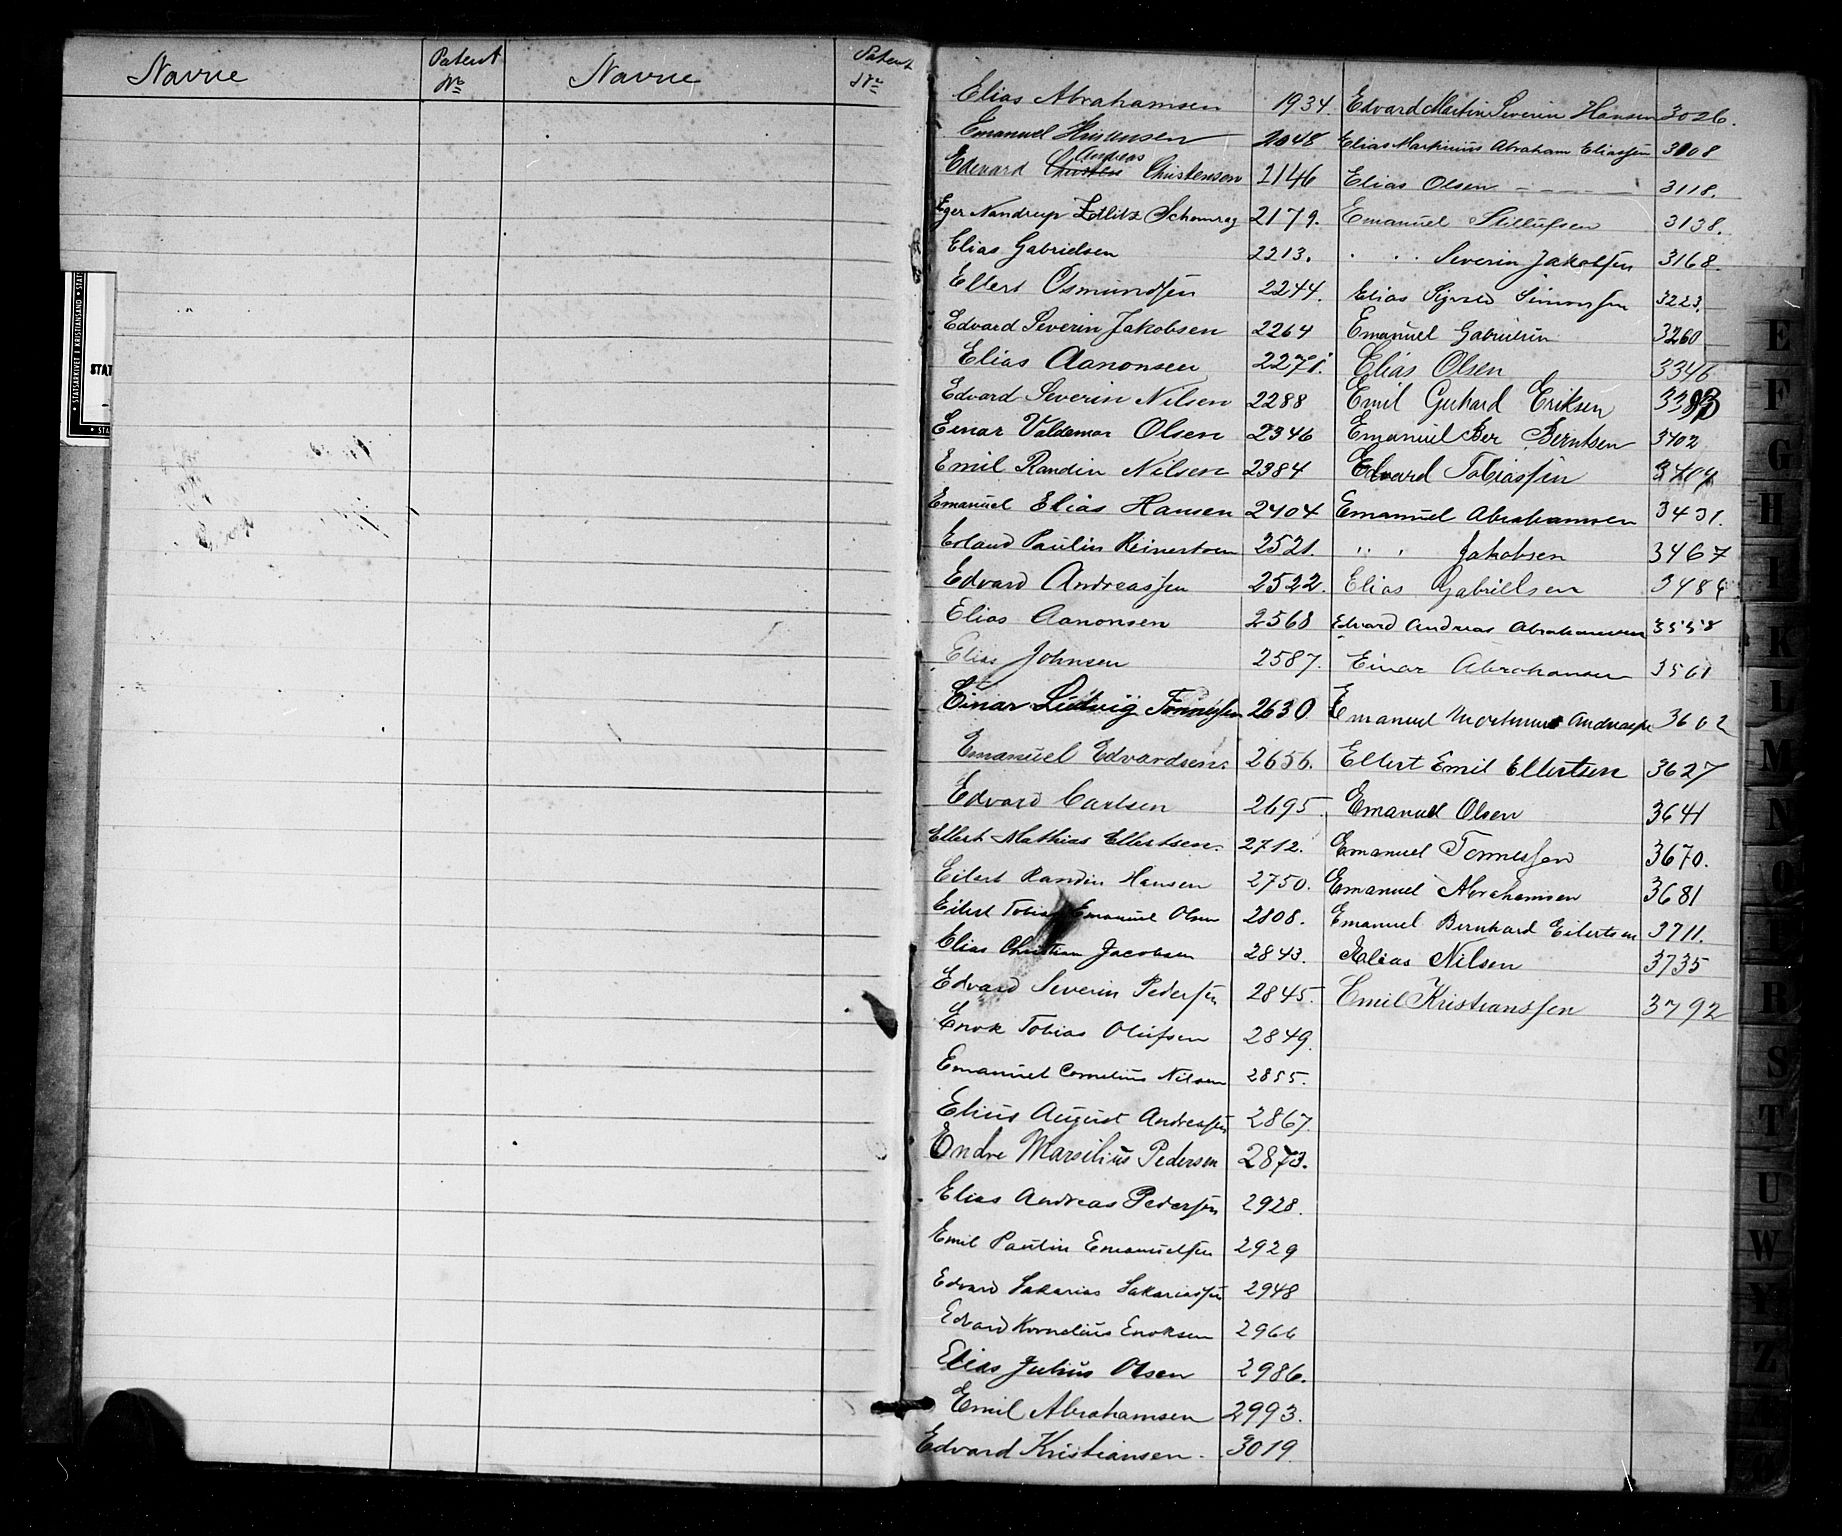 Navne Patent Nr. Navne Patent Nr.
STATSARKIVET I KRISTIANSAND
STAT
Elias Abrahamsen 1934.
Emanuel 2048
Edevard Christen Andreas Christensen 2146
Eger Nandrup Zetlitz 2179.
Elias Gabrielsen 2213.
Ellert Osmundsen 2244.
Edvard Severin Jakobsen 2264
Elias Aanonsen 2271.
Edvard Severin Nilsen 2288
Einar Valdemar Olsen 2346
Emil Randin Nilsen 2384
Emanuel Elias Hansen 2404
Erland Paulin Reinertsen 2521.
Edvard Andreassen 2522.
Elias Aanonsen 2568
Elias Johnsen 2587.
Einar Ludvig Tønnessen 2630
Emanuel Edvardsen. 2656.
Edvard Carlsen 2695
Ellert Mathias Ellertsen. 2712.
Eilert Randin Hansen 2750.
Eilert Tobias Emanuel Olsen 2808.
Elias Christian Jacobsen 2843.
Edvard Severin Pedersen 2845.
Enok Tobias Olufsen 2849.
Emanuel Cornelius Nilsen 2855.
Elius August Andreassen 2867.
Endre Marselius Pedersen 2873.
Elias Andreas Pedersen 2928.
Emil Paulin Emanuelsen 2929
Edvard Sakarias Sakariassen 2948
Edvard Kornelius Enoksen 2966
Elias Julius Olsen 2986.
Emil Abrahamsen 2993.
Edvard Kristiansen. 3019.
Edvard Martin Severin Hansen 3026.
Elias Markinius Abraham Eliassen 3108
Elias Olsen 3118.
Emanuel 3138.
" " Severin Jakobsen 3168.
Elias Sigvald Simonsen 3223.
Emanuel Gabrielsen 3260
Elias Olsen 3346
Emil Gerhard Eriksen
Emanuel Ber Berntsen 3402
Edvard Tobiassen 3404
Emanuel Abrahamsen 3431.
" " Jakobsen 3467
Elias Gabrielsen 3486
Edvard Andreas Abrahamsen 3558
Einar Abrahamsen 3561
Emanuel Mortinius Andreassen 3602
Ellert Emil Ellertsen 3627
Emanuel Olsen 3641
Emanuel Tønnessen 3670.
Emanuel Abrahamsen 3681
Emanuel Bernhard Eilertsen 3711.
Elias Nilsen 3735
Emil Kristianssen 3792
E
F
G
H
I
K
L
M
N
O
P
R
S
T
U
W
Y
Z
Ø